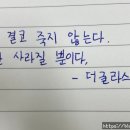 결코 죽지 않는다.
사라질 뿐이다,
- 더글라스